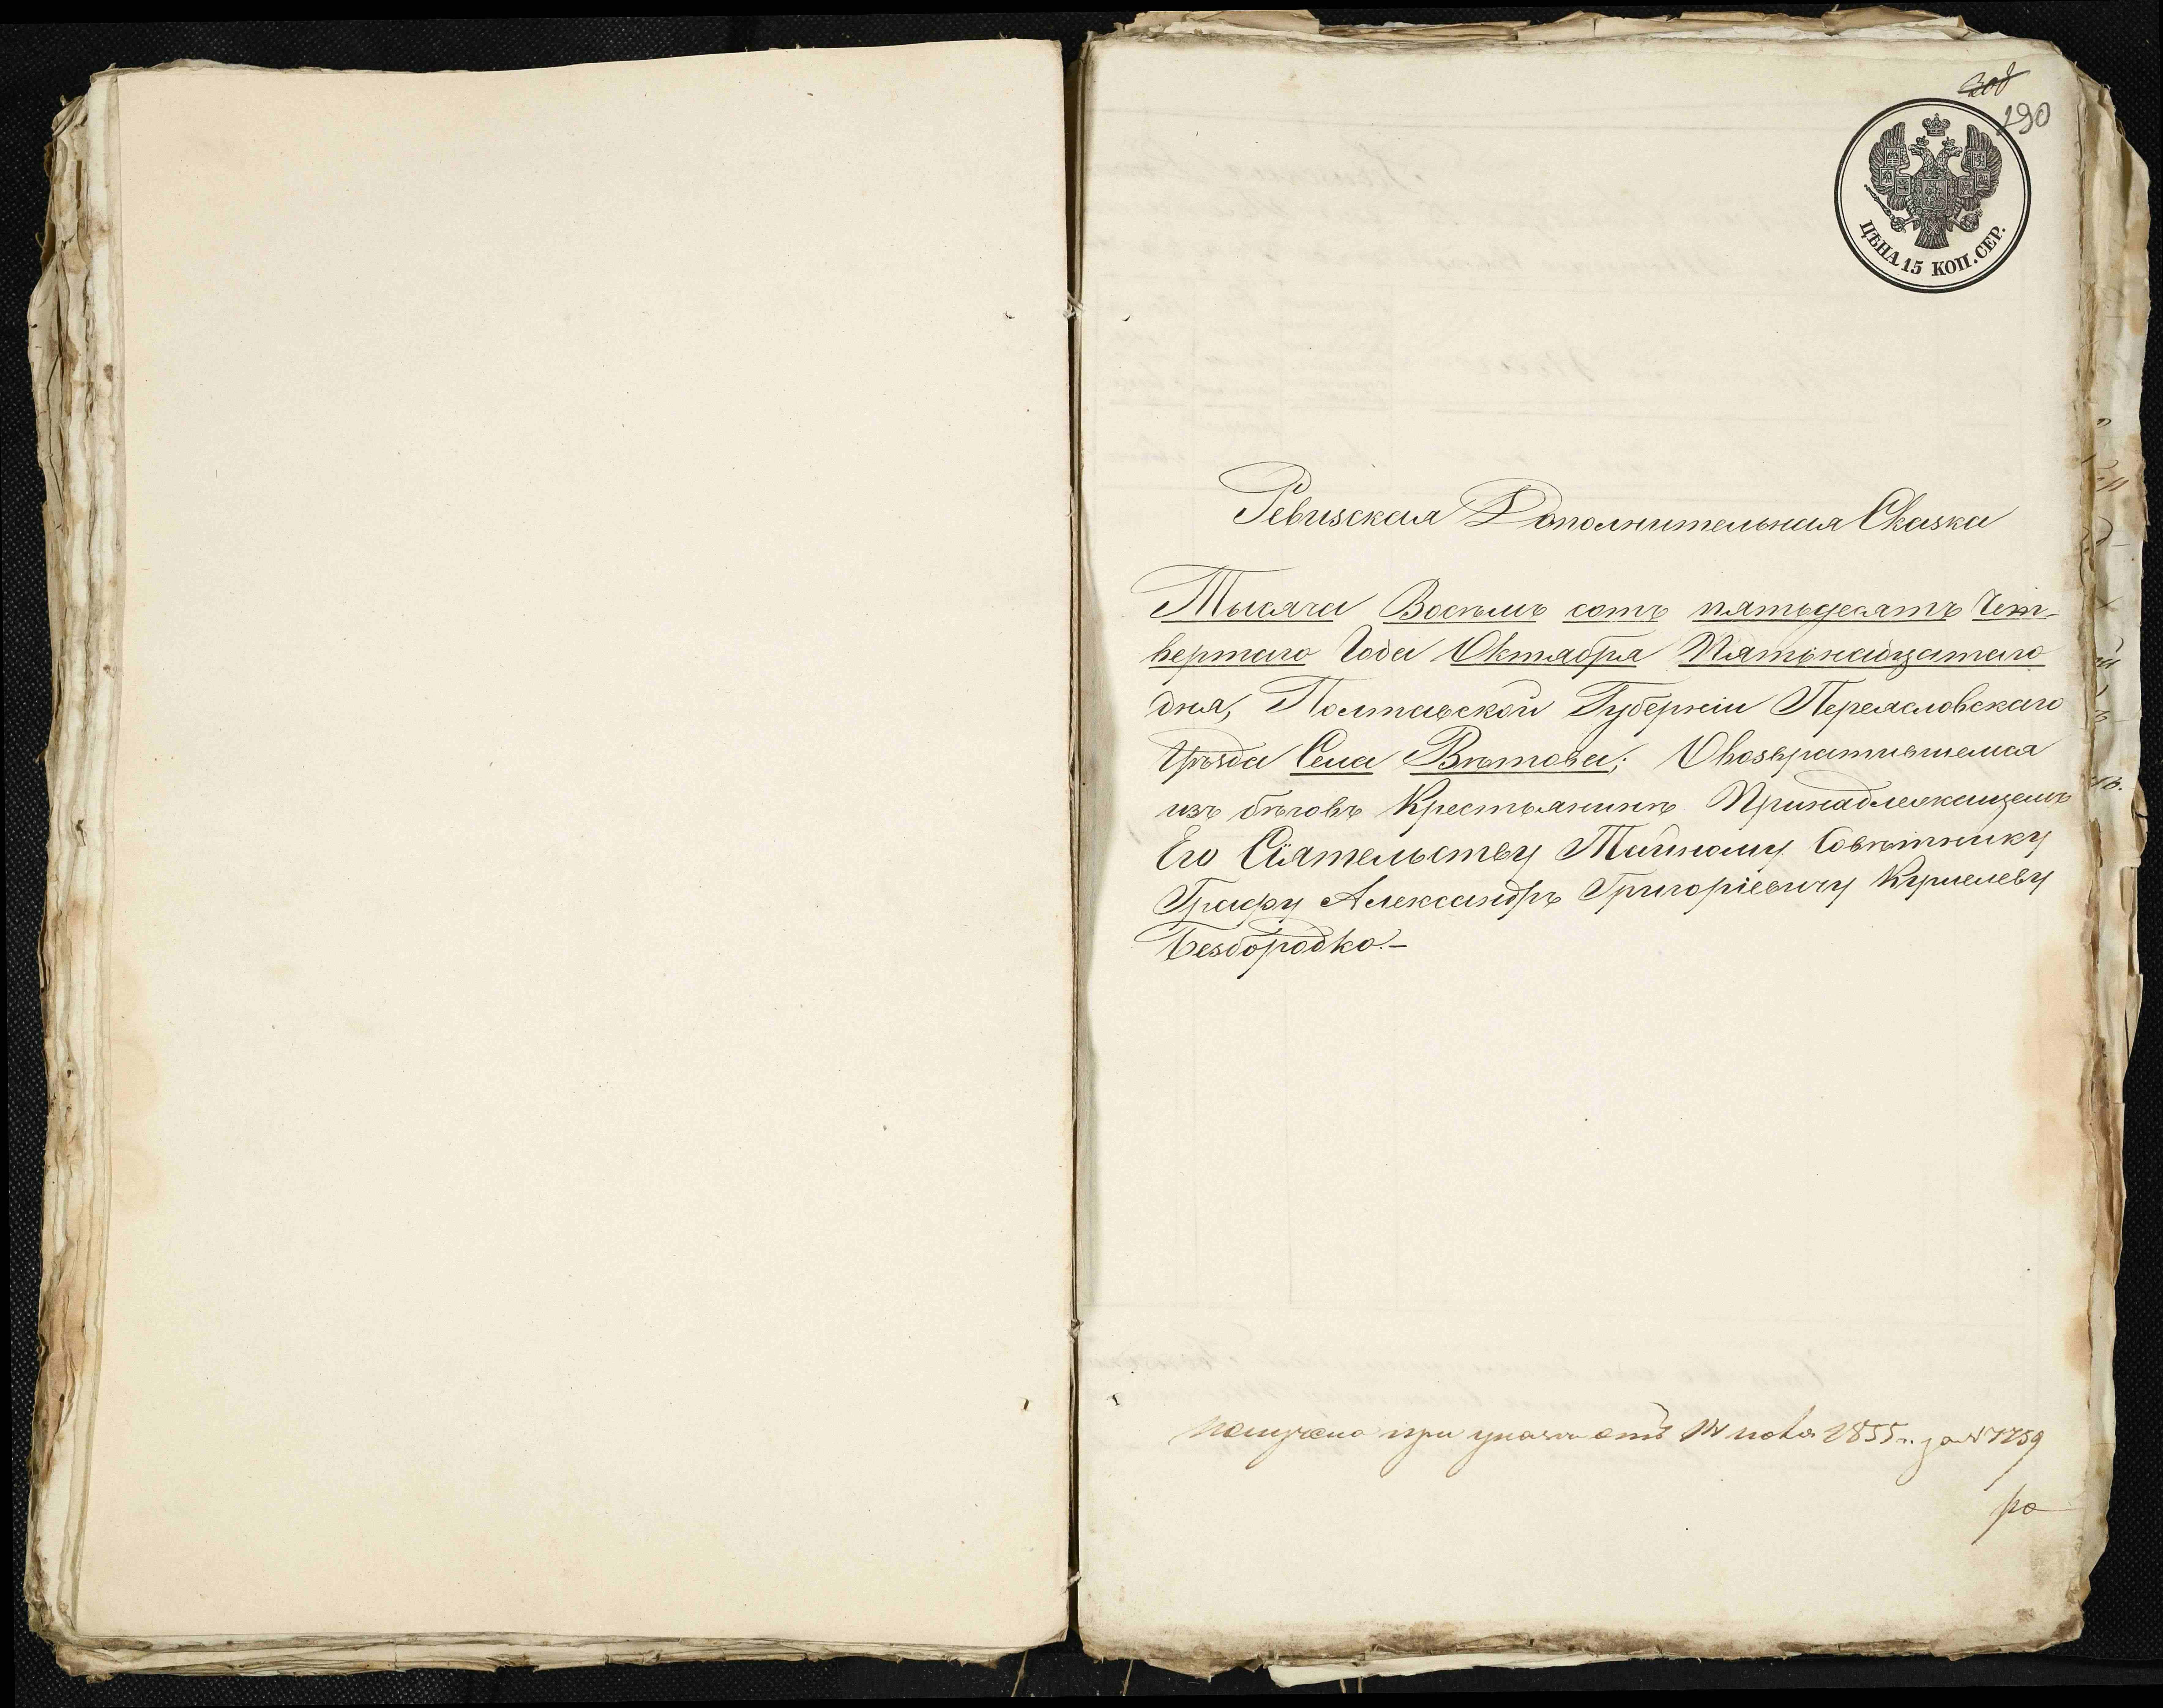 208
290
ЦѢНА 15 КОП. СЕР.
Ревизская Дополнительная Сказка
Тысяча Восѣмь сотъ пятьдесятъ Чет-
вертаго Года Октября Пятьнадцатаго
дня, Полтавской Губерніи Переясловскаго
Уѣзда Села Вѣтова; Овозвратившемся
изъ бѣговъ Крестьянинѣ Принадлежащемъ
Его Сіятельству Тайному Совѣтнику
Графу Александръ Григоріевичу Кушелеву
Безбородко.-
получено при отъ 14 1855 г. за N 7259